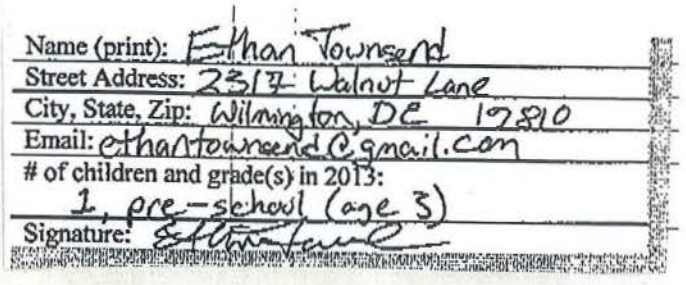 Name (print): Ethan Townsend
Street Address: 2317 Walnut Lane
City, State, Zip: Wilmington, DE 19810
Email: ethantownsend@gmail.com
# of children and grade(s) in 2013:
1, pre-school (age 3)
Signature: